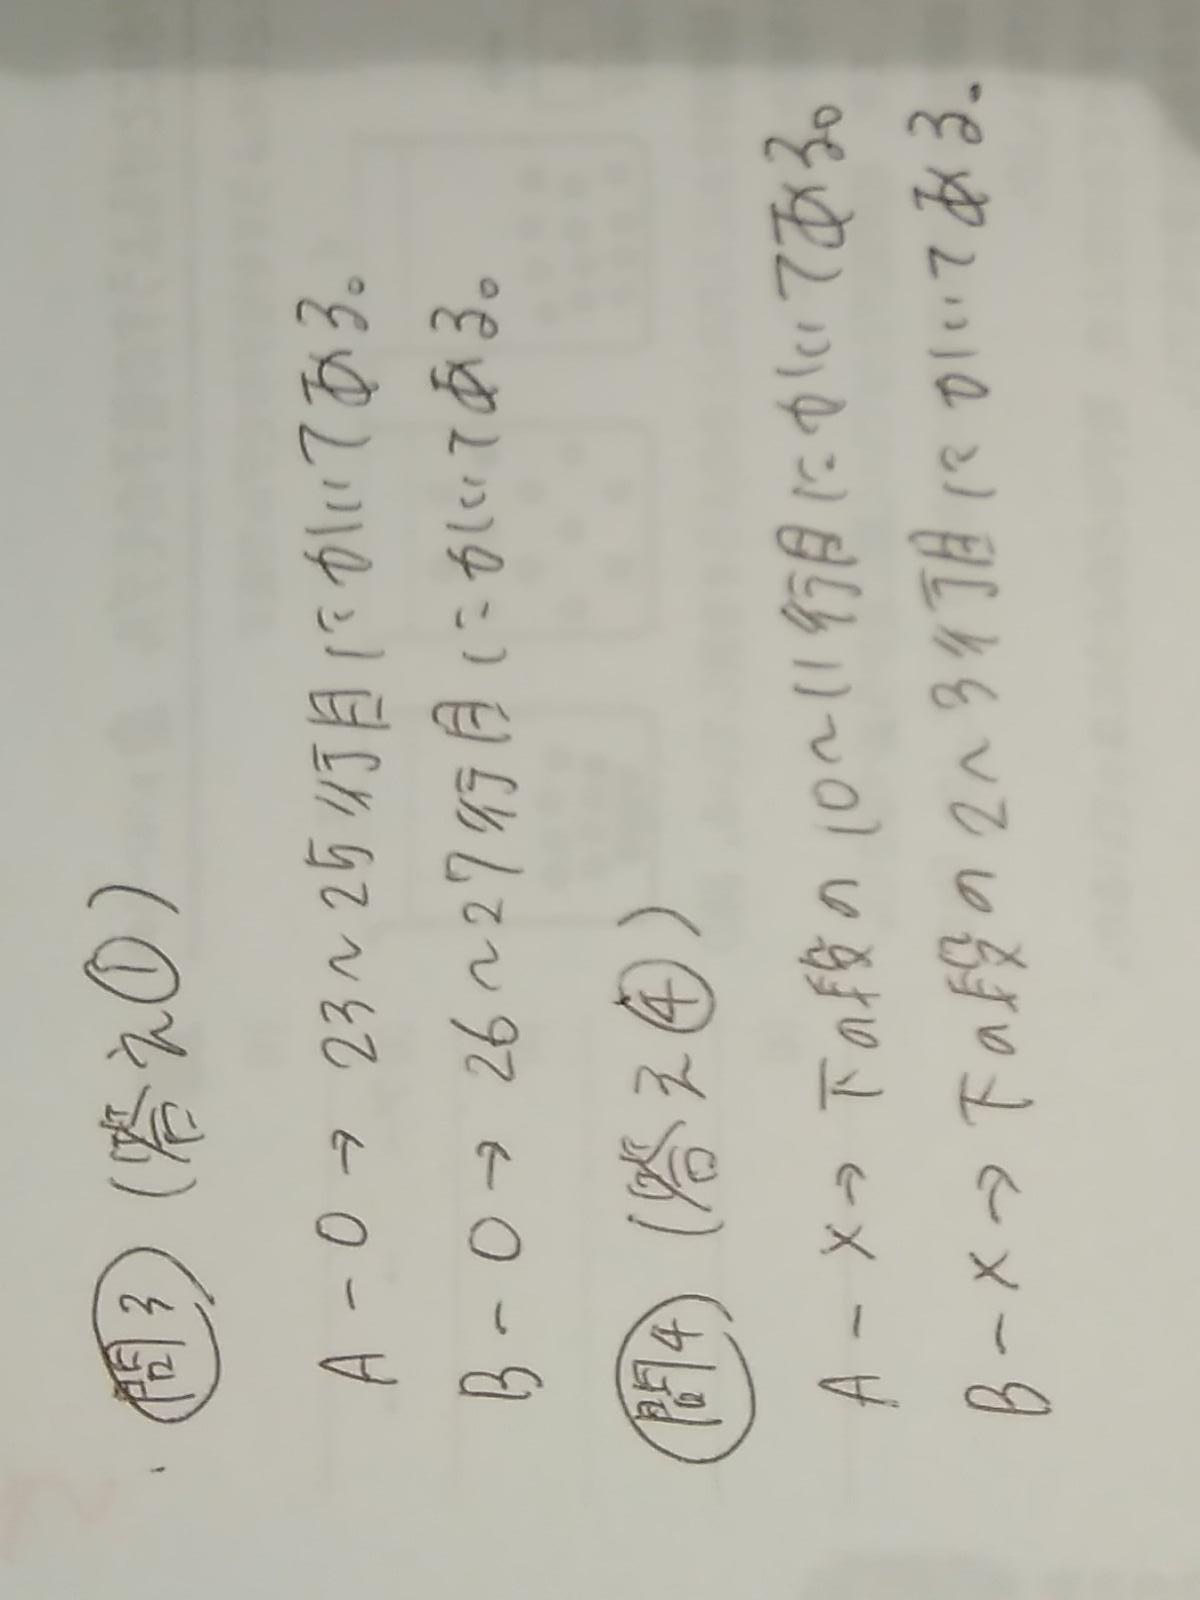 問3 (答え①)
A-○→ 23～25行目にかいてある。
B-○→ 26～27行目にかいてある。
問4 (答え④)
A-×→ 下の段の10～11行目にかいてある。
B-×→ 下の段の2～3行目にかいてある。